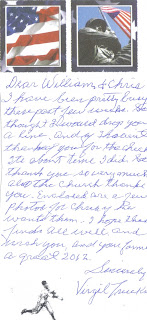 Dear William & Chris
I have been pretty busy
these past few weeks. So
thought I would drop you
a line, and for the
thank you for the check
Its about time I did. So
thank you so very much
also the Church thanks
you. Enclosed are a few
photos for Chris, if he
wants them. I hope this
finds all well and
wish you, and your family
a great 2012.
Sincerely
Virgil Trucks